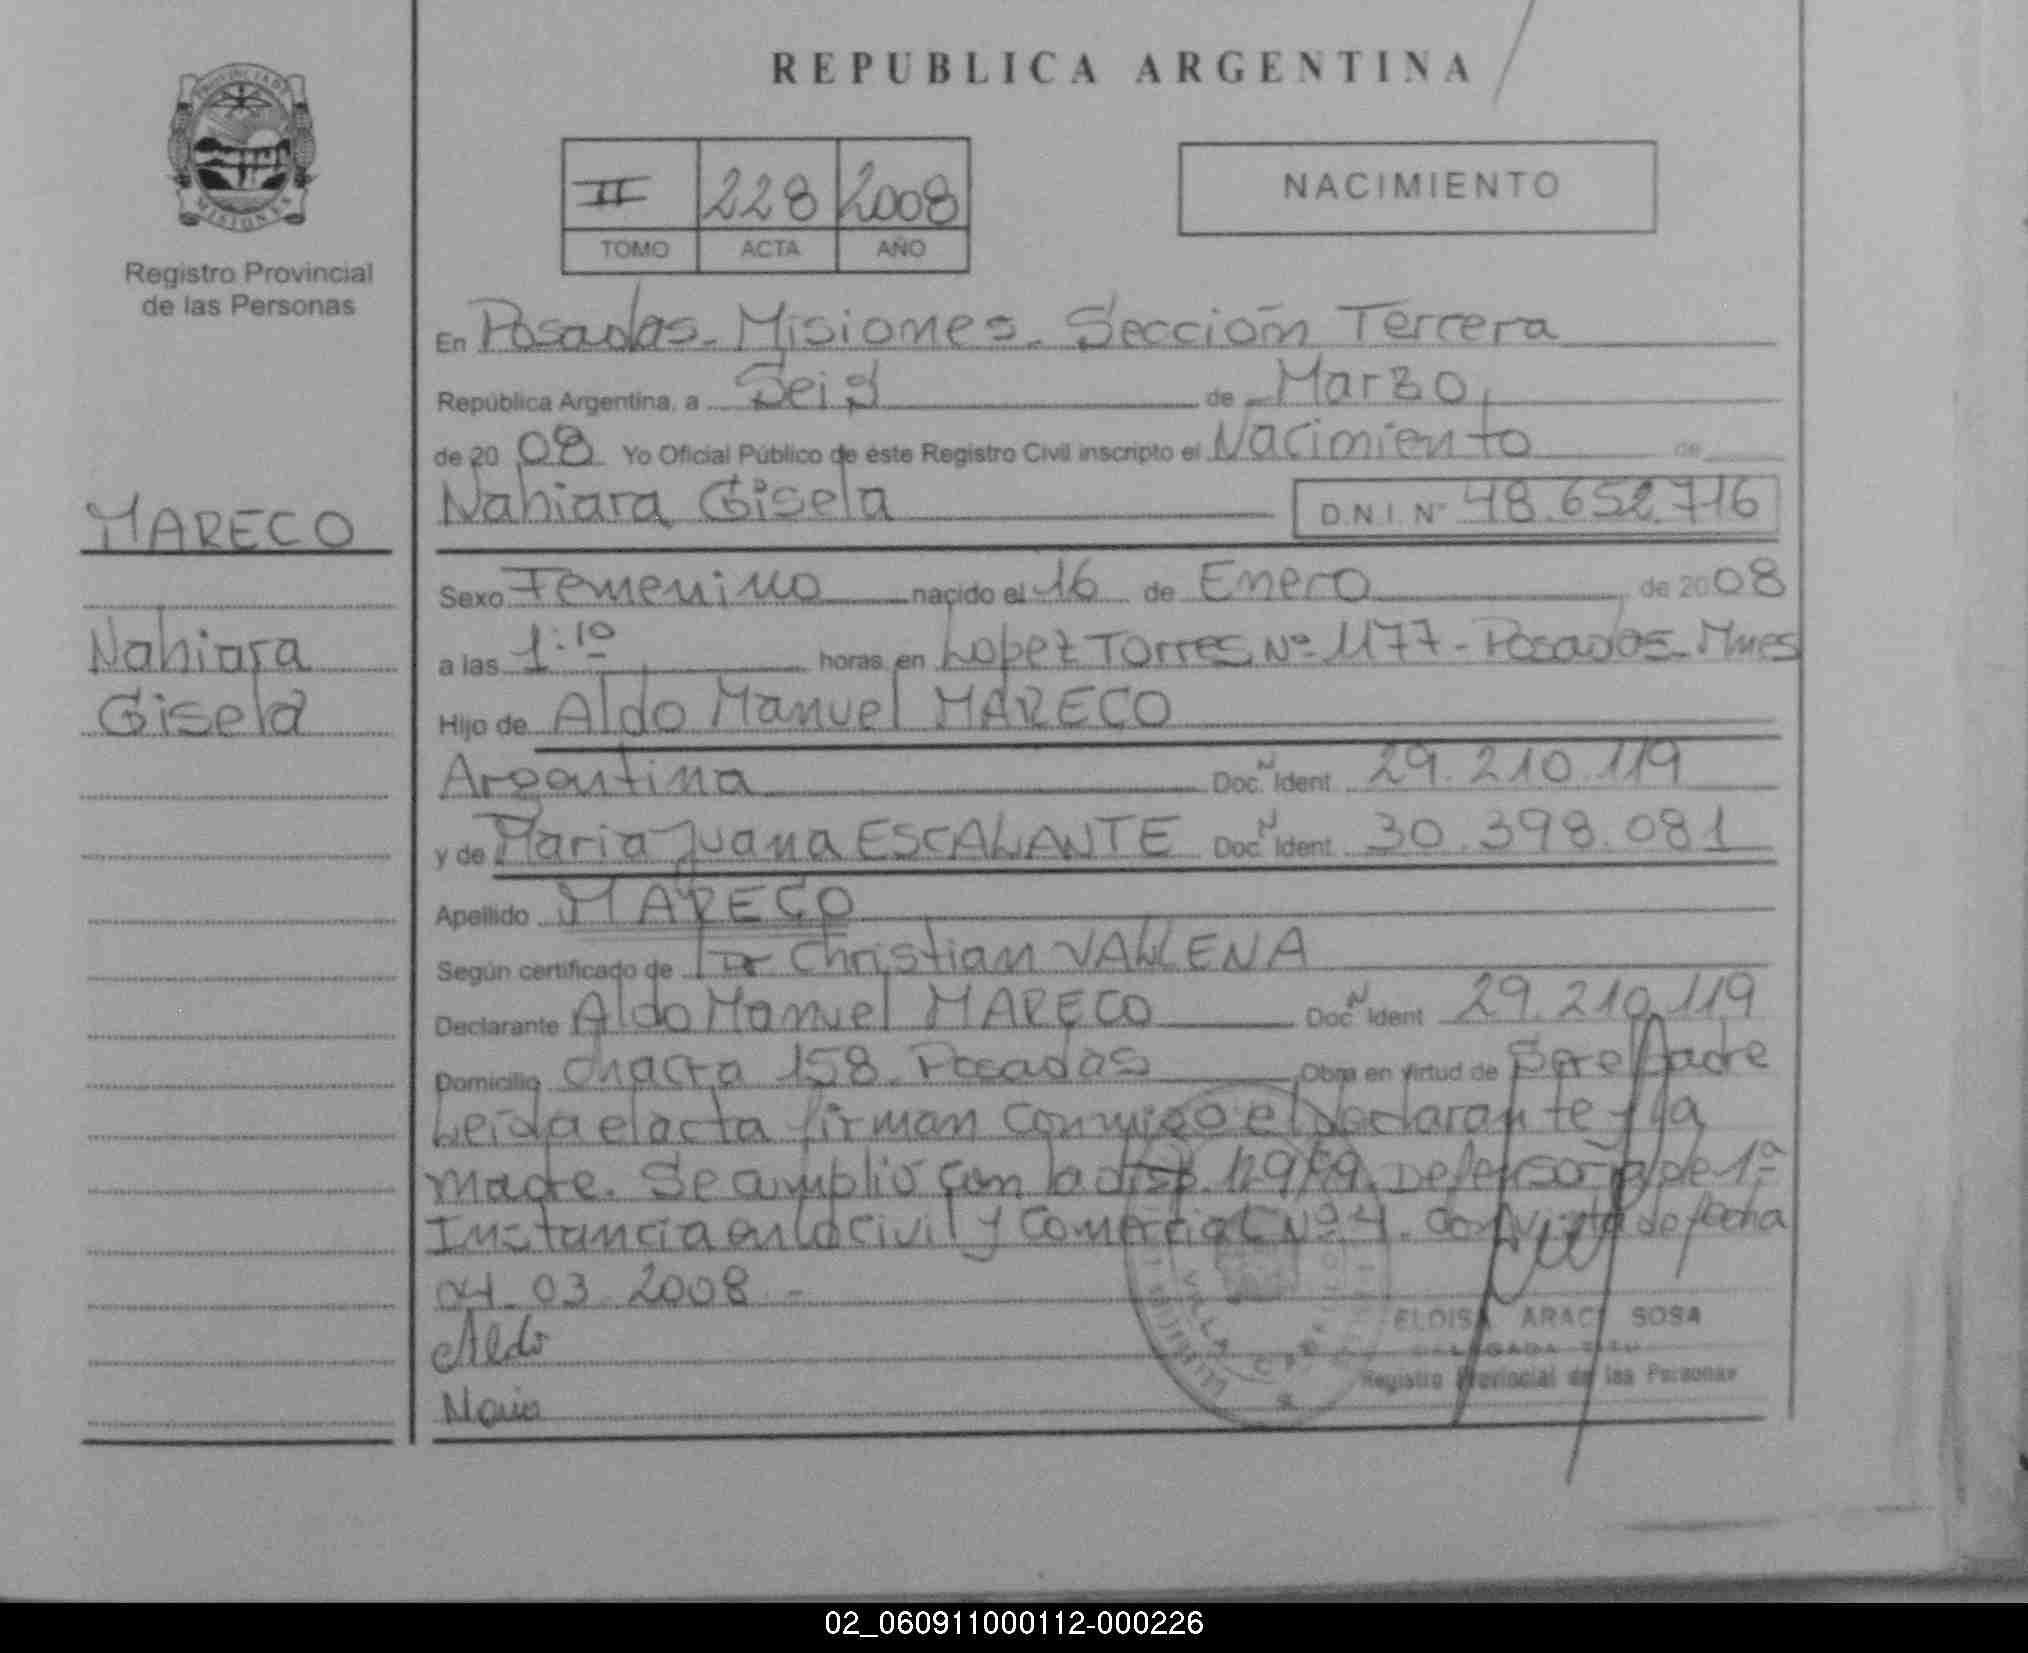 REPUBLICA ARGENTINA
PROVINCIA DE
MISIONES
Registro Provincial
de las Personas
II 228 2008
TOMO ACTA AÑO
NACIMIENTO
MARECO
Nahiara
Gisela
En Posadas - Misiones - Sección Tercera
República Argentina, a Seis de Marzo
de 2008 Yo Oficial Público de éste Registro Civil inscripto el Nacimiento de
Nahiara Gisela D.N.I. Nº 48.652.716
Sexo Femenino nacido el 16 de Enero de 2008
a las 1:10 horas en Lopez Torres Nº 1177 - Posadas - Mnes
Hijo de Aldo Manuel MARECO
Argentina Doc. N Ident. 29.210.119
y de Maria Juana ESCALANTE Doc. N Ident. 30.398.081
Apellido MARECO
Según certificado de Dr Christian VALLENA
Declarante Aldo Manuel MARECO Doc. N Ident 29.210.119
Domicilio chacra 158 - Posadas Obra en virtud de Ser el Padre
Leida el acta firman conmigo el Declarante y la
madre. Se amplió con la disp. Defensoria de 1ª
Instancia en lo Civil y Comercial Nº 4. Con vista de fecha
04-03-2008 -
Aldo
Maria
VILLA CABELLO
ELOISA ARACI SOSA
Registro Provincial de las Personas
02_060911000112-000226